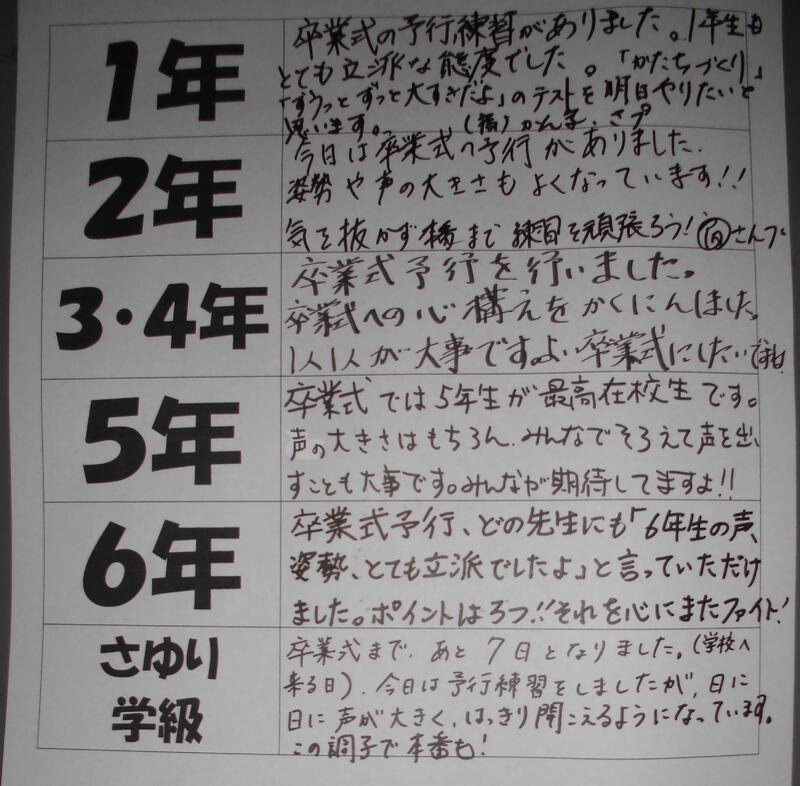 1年
卒業式の予行練習がありました。1年生も
とても立派な態度でした。「かたちづくり」
「ずうっとずっと大すきだよ」のテストを明日やりたいと
思います。(宿)かん字、さプ
2年
今日は卒業式の予行がありました。
姿勢や声の大きさもよくなっています!!
気を抜かず本番まで練習を頑張ろう!宿さんプ
3・4年
卒業式予行を行いました。
卒業式への心構えをかくにんしました。
1人1人が大事です。よい卒業式にしたいですね。
5年
卒業式では5年生が最高在校生です。
声の大きさはもちろん、みんなでそろえて声を出
すことも大事です。みんなが期待してますよ!!
6年
卒業式予行、どの先生にも「6年生の声、
姿勢、とても立派でしたよ」と言っていただけ
ました。ポイントは3つ!!それを心にまたファイト!
さゆり
学級
卒業式まで、あと7日となりました。(学校へ
来る日)。今日は予行練習をしましたが、日に
日に声が大きく、はっきり聞こえるようになっています。
この調子で本番も!